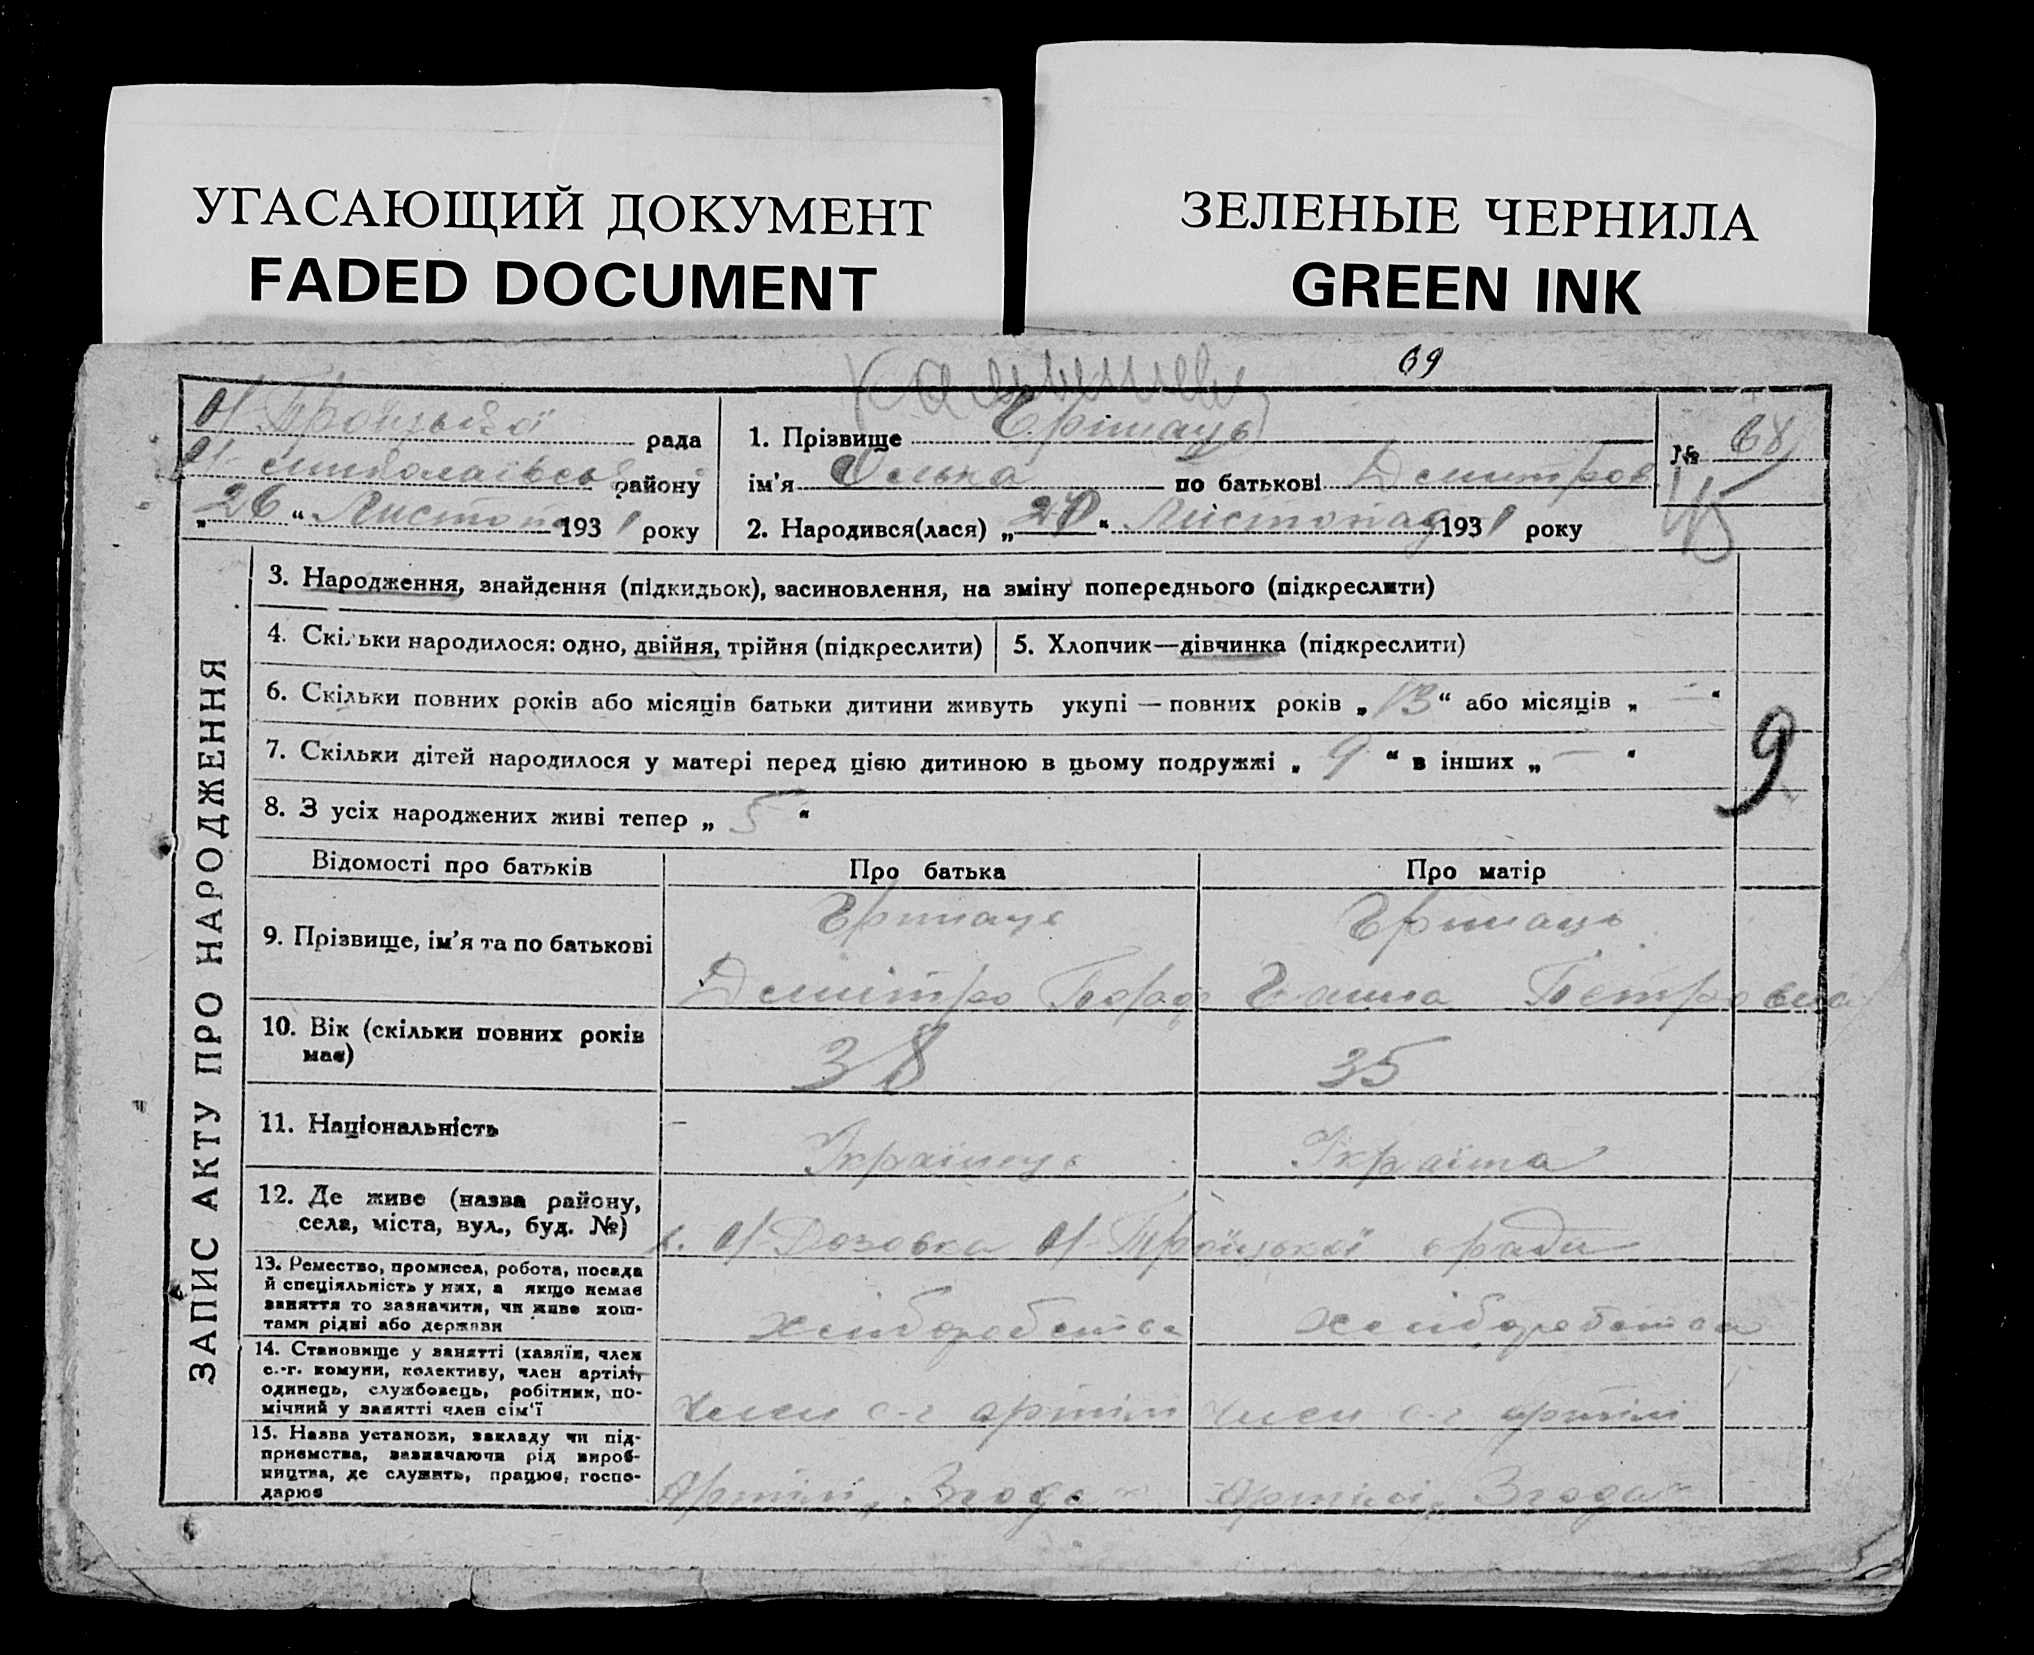 УГАСАЮЩИЙ ДОКУМЕНТ
FADED DOCUMENT
ЗЕЛЕНЫЕ ЧЕРНИЛА
GREEN INK
69
рада
району
„ 26 “ Листопа 193 1 року
1. Прізвище
ім'я по батькові Дмитров
2. Народився(лася) „ “ Листопад 193 1 року
№ 68
ЗАПИС АКТУ ПРО НАРОДЖЕННЯ
3. Народження, знайдення (підкидьок), засиновлення, на зміну попереднього (підкреслити)
4. Скільки народилося: одно, двійня, трійня (підкреслити)
5. Хлопчик—дівчинка (підкреслити)
6. Скільки повних років або місяців батьки дитини живуть укупі — повних років „ 13 “ або місяців „ — “
7. Скільки дітей народилося у матері перед цією дитиною в цьому подружжі „ 9 “ в інших „ — “
9
8. З усіх народжених живі тепер „ 5 “
Відомості про батьків
Про батька
Про матір
9. Прізвище, ім'я та по батькові
Дмитро
Ганна Петровна
10. Вік (скільки повних років має)
38
35
11. Національність
Україець
Україна
12. Де живе (назва району,
села, міста, вул., буд. №)
ради
13. Ремество, промисел, робота, посада
й спеціяльність у них, а якщо немає
заняття то зазначити, чи живе кош-
тами рідні або держави
хліборобства
хліборобства
14. Становище у занятті (хазяїн, член
с.-г. комуни, колективу, член артілі,
одинець, службовець, робітник, по-
мічний у занятті член сім'ї
член с-г артілі
член с-г артілі
15. Назва установи, закладу чи під-
приємства, зазначаючи рід вироб-
ництва, де служить, працює, госпо-
дарює
Артілі „Згода“
Артілі „Згода“